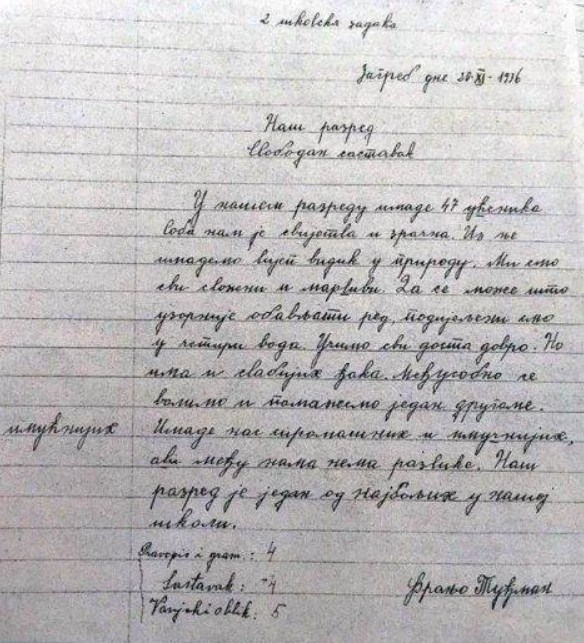 2 школска задаћа
Загреб дне 20. XI. 1936
Наш разред
Слободан саставак
У нашем разреду имаде 47 ученика
Соба нам је свијетла и зрачна. Из ње
имадемо лијеп видик у природу. Ми смо
сви сложени и марљиви. Да се може што
узорније обављати ред, подијељени смо
у четири вода. Учимо сви доста добро. Но
има и слабијих ђака. Међусобно се
волимо и помажемо један другоме.
имућнијих
Имаде нас сиромашних и имучнијих,
али међу нама нема разлике. Наш
разред је један од најбољих у нашој
школи.
Pravopis i gram.: 4
Sastavak: -4
Vanjski oblik: 5
Фрањо Туђман